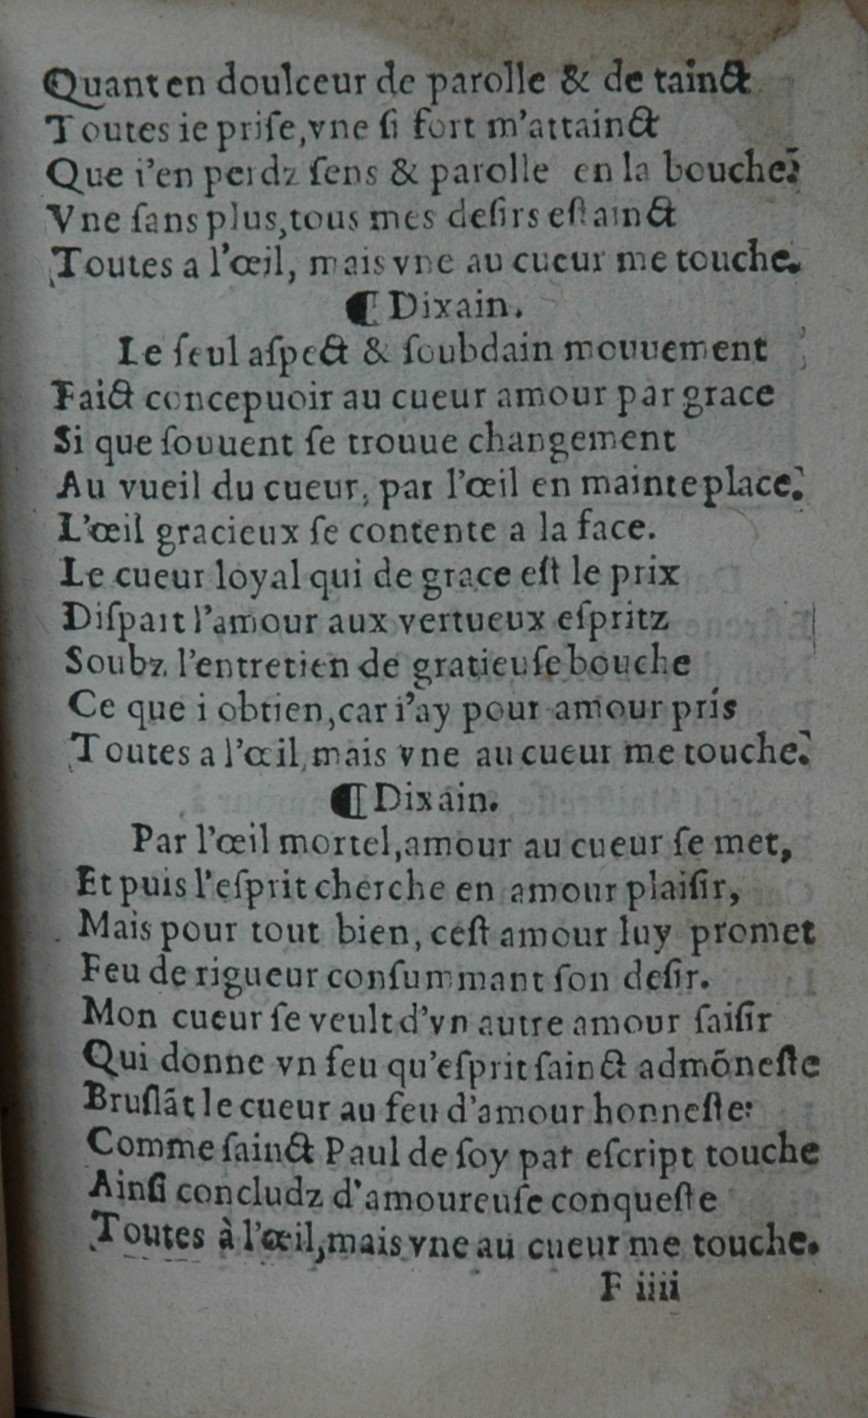 Quant en doulceur de parolle & de tainct
Toutes ie priſe, vne ſi fort m'attainct
Que i'en perdz ſens & parolle en la bouche:
Vne ſans plus, tous mes deſirs eſtainct
Toutes a l'œil, mais vne au cueur me touche.
¶ Dixain.
Le ſeul aſpect & ſoubdain mouuement
Faict concepuoir au cueur amour par grace
Si que ſouuent ſe trouue changement
Au vueil du cueur, par l'œil en mainte place.
L'œil gracieux ſe contente a la face.
Le cueur loyal qui de grace eſt le prix
Diſpart l'amour aux vertueux eſpritz
Soubz l'entretien de gratieuſe bouche
Ce que i obtien, car i'ay pour amour pris
Toutes a l'œil, mais vne au cueur me touche.
¶ Dixain.
Par l'œil mortel, amour au cueur ſe met,
Et puis l'eſprit cherche en amour plaiſir,
Mais pour tout bien, ceſt amour luy promet
Feu de rigueur conſummant ſon deſir.
Mon cueur ſe veult d'vn autre amour ſaiſir
Qui donne vn feu qu'eſprit ſainct admõneſte
Bruſlãt le cueur au feu d'amour honneſte:
Comme ſainct Paul de ſoy par eſcript touche
Ainſi concludz d'amoureuſe conqueſte
Toutes à l'œil, mais vne au cueur me touche.
F iiii